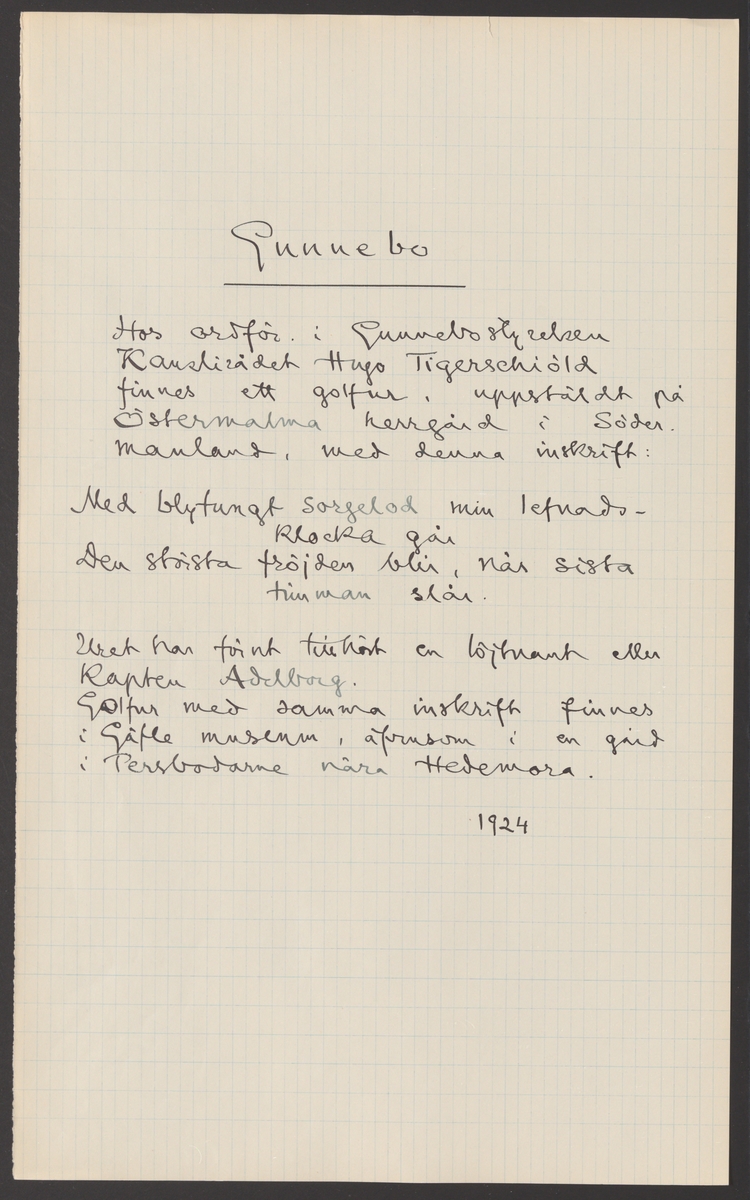 Gunnebo
Hos ordför. i Gunnebostyrelsen
Kanslirådet Hugo Tigerschiöld
finnes ett golfur, uppstäldt på
Östermalma herrgård i Söder.
manland, med denna inskrift:
Med blytungt sorgelod min lefnads-
klocka går
Den största fröjden blir, när sista
timman slår.
Uret har förut tillhört en löjtnant eller
Kapten Adelborg.
Golfur med samma inskrift finnes
i Gäfle museum, äfvensom i en gård
i Persbodarne nära Hedemora.
1924